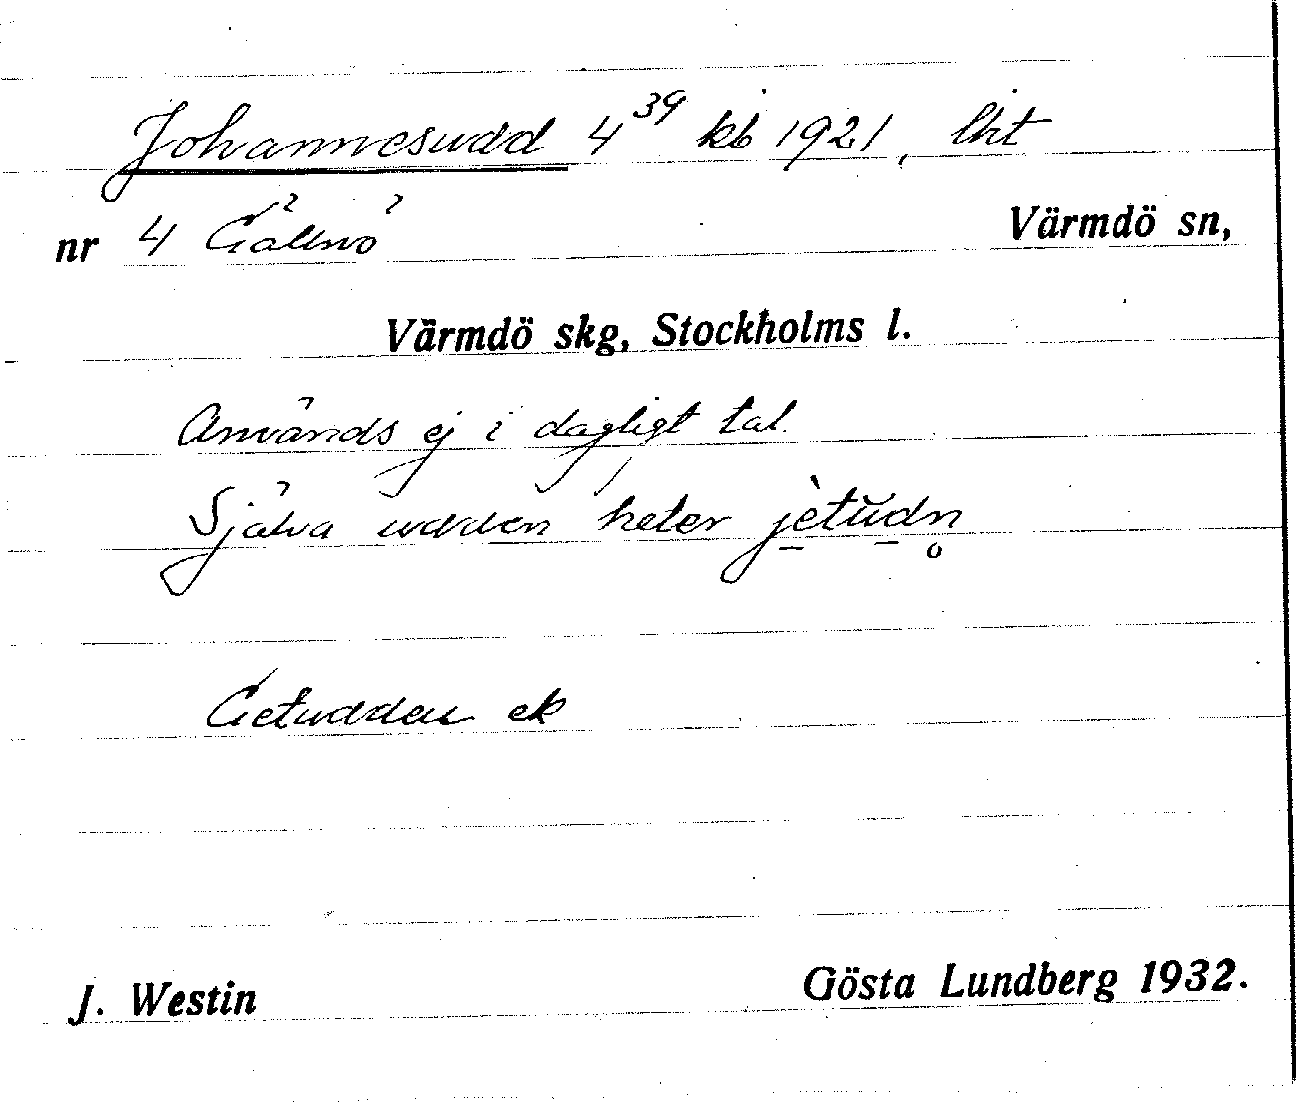 Johannesudd 4³⁹ kb 1921, lht
nr 4 Gällnö Värmdö sn,
Värmdö skg, Stockholms l.
Används ej i dagligt tal.
Själva udden heter jètŭdn̥
Getudden ek
J. Westin Gösta Lundberg 1932.